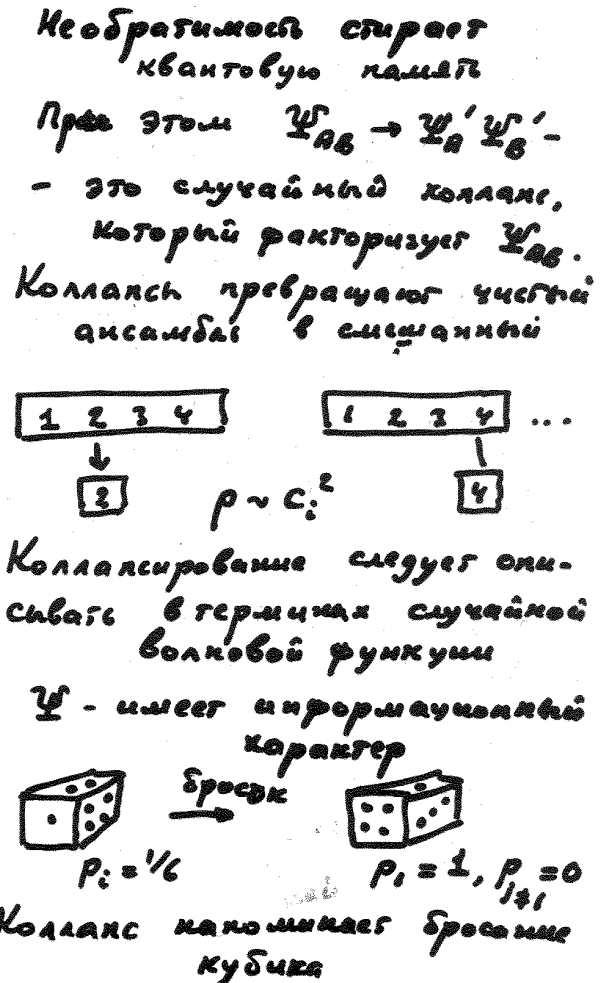 Необратимость стирает
квантовую память
При этом Ψ_AB → Ψ_A' Ψ_B' -
- это случайный коллапс,
который факторизует Ψ_AB.
Коллапсы превращают чистый
ансамбль в смешанный
1 2 3 4 1 2 3 4 ...
2 p ~ c_i^2 4
Коллапсирование следует опи-
сывать в терминах случайной
волновой функции
Ψ - имеет информационный
характер
бросок
p_i = 1/6 p_1 = 1, p_j≠1 = 0
Коллапс напоминает бросание
кубика